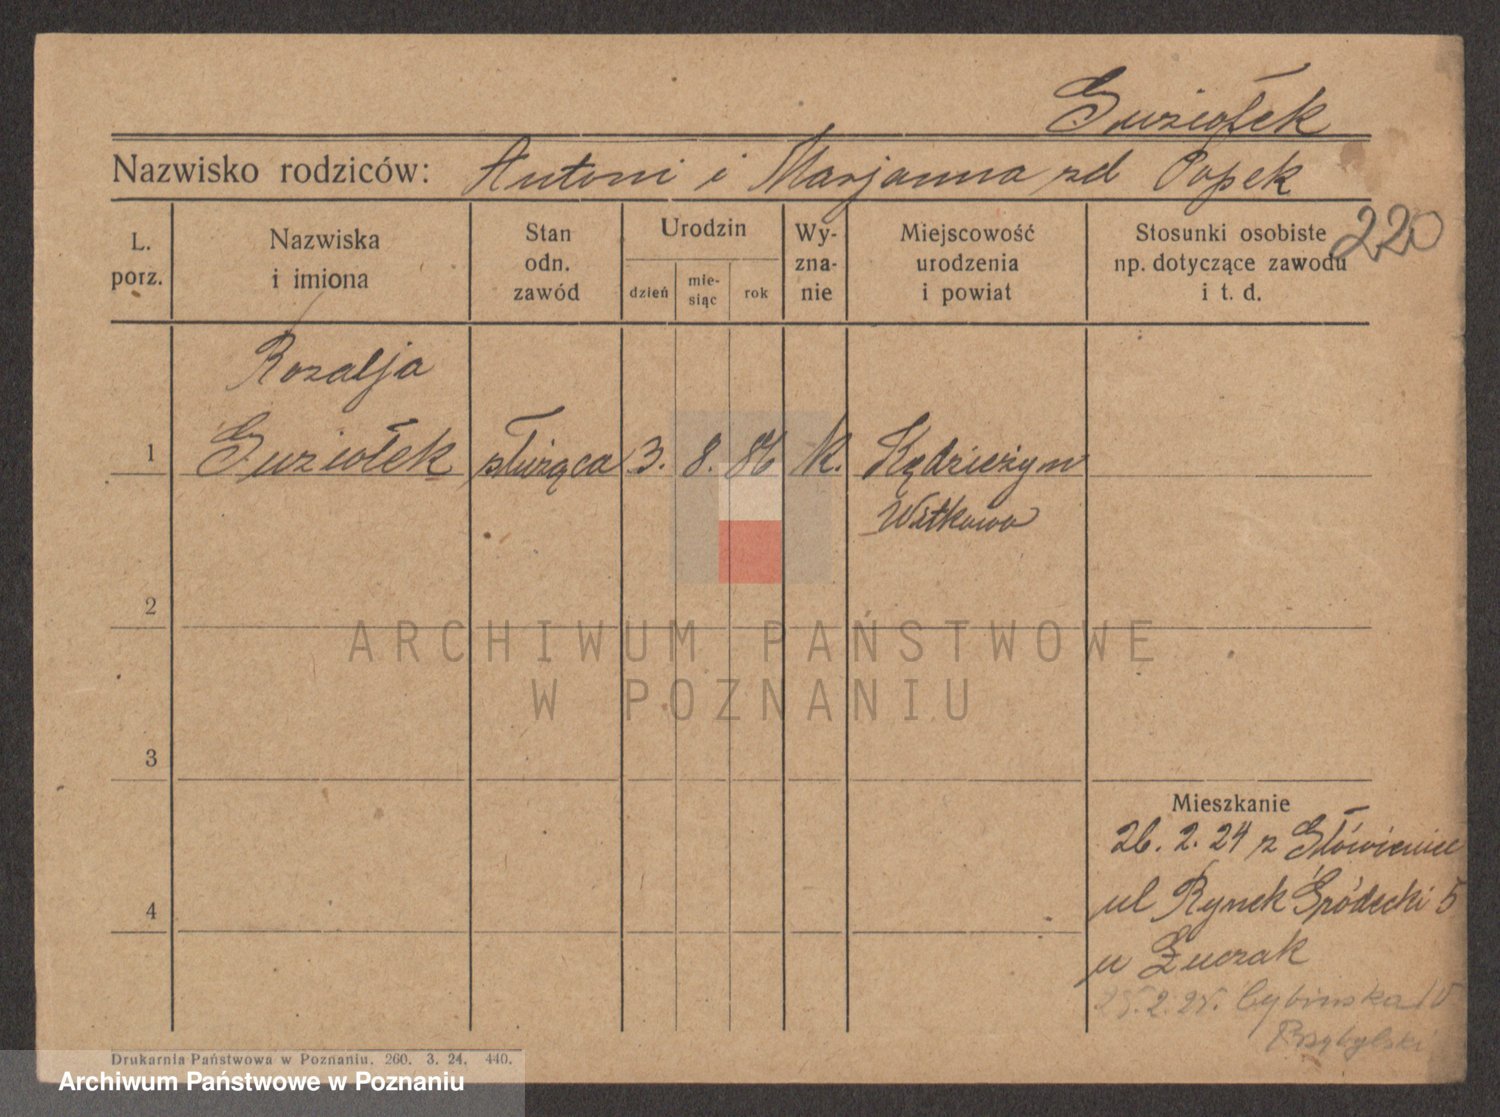 Guziołek
Nazwisko rodziców: Antoni i Marjanna zd Popek
220
L. porz.
Nazwiska i imiona
Stan odn. zawód
Urodzin
dzień
mie- siąc
rok
Wy- zna- nie
Miejscowość urodzenia i powiat
Stosunki osobiste np. dotyczące zawodu i t. d.
Rozalja
1 Guziołek służąca 3. 8. 86 K. Kędzierzyn
Witkowo
2
ARCHIWUM PAŃSTWOWE
W POZNANIU
3
Mieszkanie
26. 2. 24 z Główieniec
4
ul Rynek Śródecki 5
u Łuczak
25. 2. 25. Cybinska 10
Przybylski
Drukarnia Państwowa w Poznaniu. 260. 3. 24. 440.
Archiwum Państwowe w Poznaniu